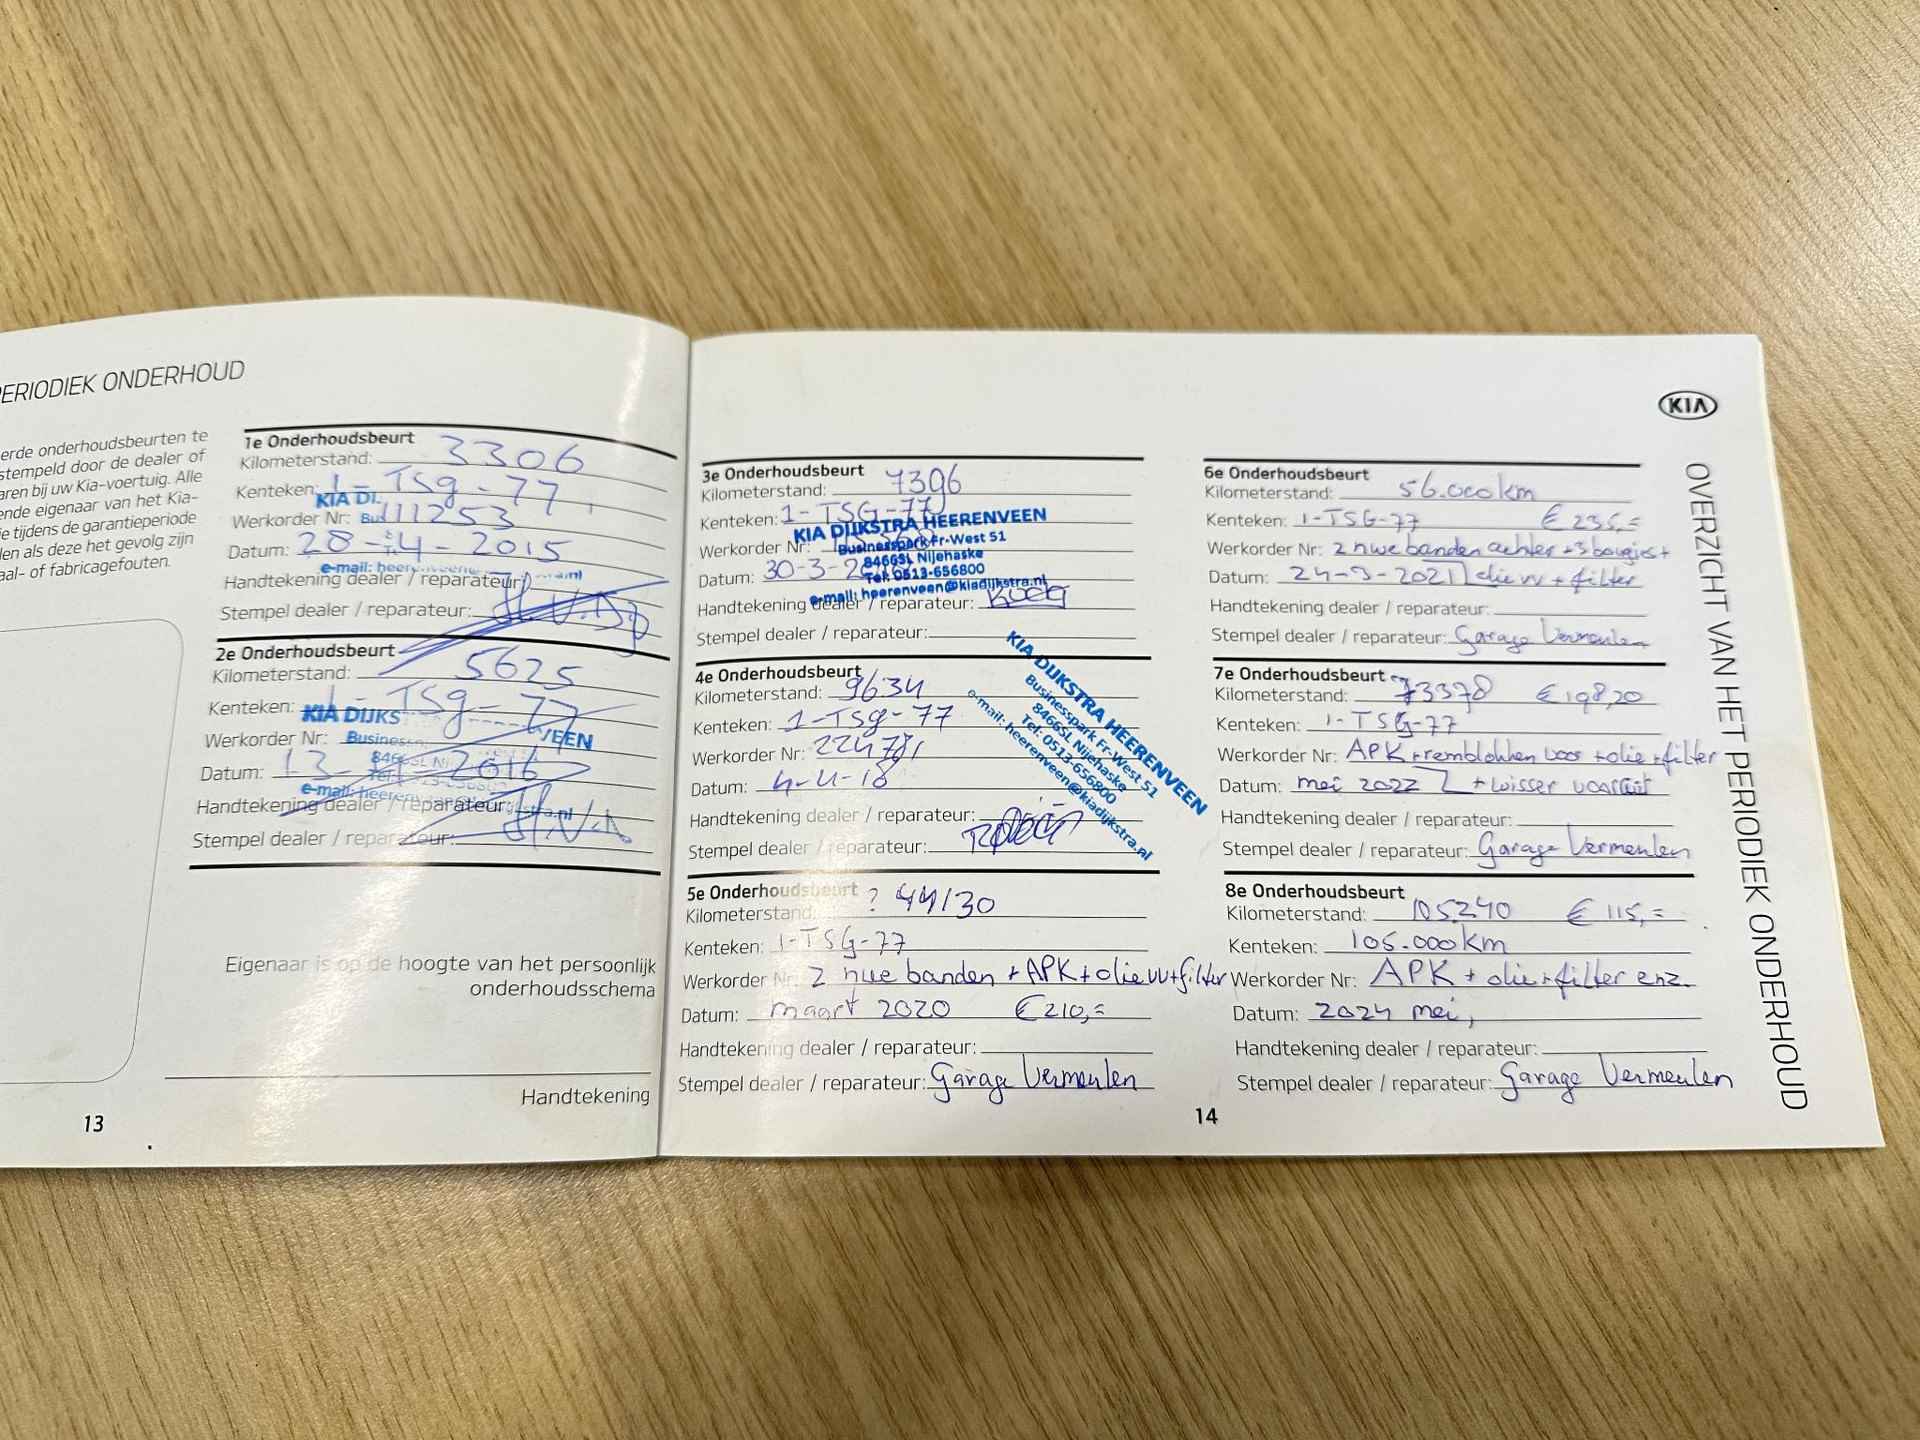 PERIODIEK ONDERHOUD
erde onderhoudsbeurten te
stempeld door de dealer of
aren bij uw Kia-voertuig. Alle
ende eigenaar van het Kia-
ie tijdens de garantieperiode
len als deze het gevolg zijn
aal- of fabricagefouten.
1e Onderhoudsbeurt
Kilometerstand: 3306
Kenteken: 1-TSg-77
KIA DI
Werkorder Nr: 111253
Datum: 28-4-2015
e-mail: heer
Handtekening dealer / reparateur:
Stempel dealer / reparateur:
2e Onderhoudsbeurt
Kilometerstand: 5625
Kenteken: 1-TSg-77
KIA DIJKS VEEN
Werkorder Nr:
Datum: 13- 2016
e-mail: heeren
Handtekening dealer / reparateur:
Stempel dealer / reparateur:
Eigenaar is op de hoogte van het persoonlijk
onderhoudsschema
Handtekening
13
3e Onderhoudsbeurt
Kilometerstand: 7396
Kenteken: 1-TSG-77
Werkorder Nr:
Datum: 30-3-
KIA DIJKSTRA HEERENVEEN
Businesspark Fr-West 51
8466SL Nijehaske
Tel: 0513-656800
e-mail: heerenveen@kiadijkstra.nl
Handtekening dealer / reparateur:
Stempel dealer / reparateur:
4e Onderhoudsbeurt
Kilometerstand: 9634
Kenteken: 1-TSg-77
Werkorder Nr: 22478,
Datum: 4-4-18
Handtekening dealer / reparateur:
Stempel dealer / reparateur:
KIA DIJKSTRA HEERENVEEN
Businesspark Fr-West 51
8466SL Nijehaske
Tel: 0513-656800
e-mail: heerenveen@kiadijkstra.nl
5e Onderhoudsbeurt
Kilometerstand: ? 44130
Kenteken: 1-TSG-77
Werkorder Nr: 2 nwe banden + APK + olie vv + filter
Datum: maart 2020 € 210,=
Handtekening dealer / reparateur:
Stempel dealer / reparateur: Garage Vermeulen
14
KIA
OVERZICHT VAN HET PERIODIEK ONDERHOUD
6e Onderhoudsbeurt
Kilometerstand: 56.000 km
Kenteken: 1-TSG-77 € 235,=
Werkorder Nr: 2 nwe banden achter + 3 bougies +
Datum: 24-3-2021 olie vv + filter
Handtekening dealer / reparateur:
Stempel dealer / reparateur: Garage Vermeulen
7e Onderhoudsbeurt
Kilometerstand: 73378 € 198,20
Kenteken: 1-TSG-77
Werkorder Nr: APK + remblokken voor + olie + filter
Datum: mei 2022 + wisser voorruit
Handtekening dealer / reparateur:
Stempel dealer / reparateur: Garage Vermeulen
8e Onderhoudsbeurt
Kilometerstand: 105.240 € 115,=
Kenteken: 105.000 km
Werkorder Nr: APK + olie + filter enz.
Datum: 2024 mei,
Handtekening dealer / reparateur:
Stempel dealer / reparateur: Garage Vermeulen